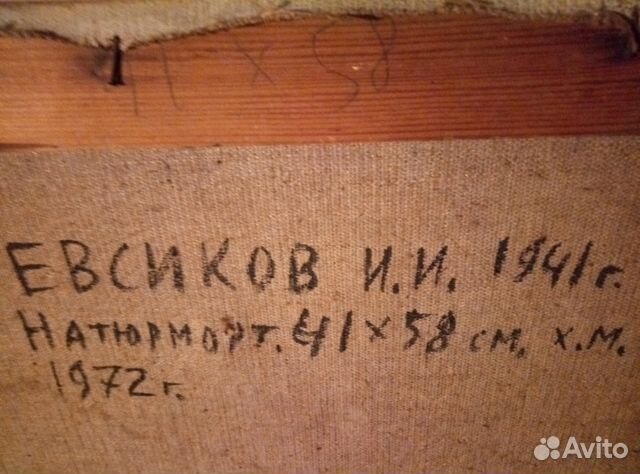 41 x 58
ЕВСИКОВ И.И. 1941г.
НАТЮРМОРТ. 41×58 см. х.м.
1972г.
Avito